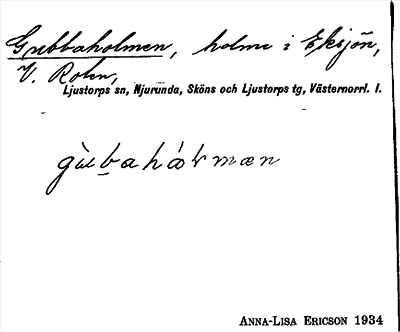 Gubbaholmen, holme i Eksjön,
V. Rolen,
Ljustorps sn, Njurunda, Sköns och Ljustorps tg, Västernorrl. l.
gùbahálmæn
ANNA-LISA ERICSON 1934